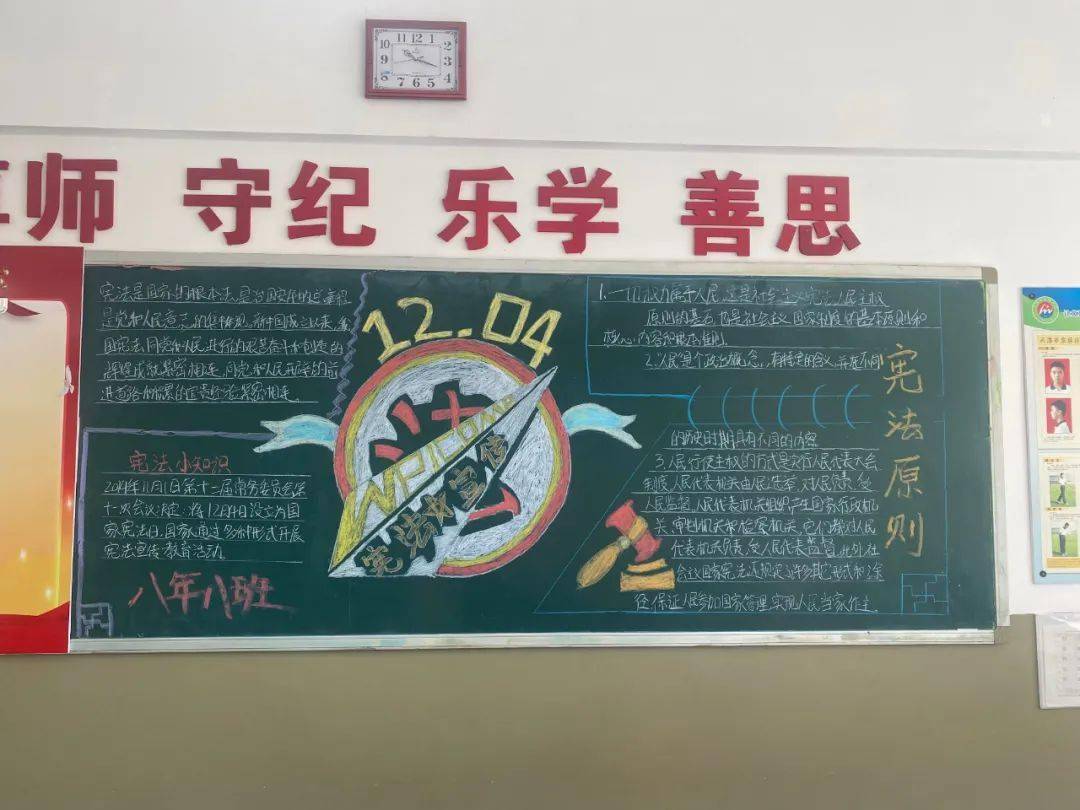 师 守纪 乐学 善思
12.04
宪法是国家的根本法,是治国安邦的总章程
是党和人民意志的集中体现。新中国成立以来,我
国宪法同党和人民进行的艰苦奋斗和创造的
辉煌成就紧密相连,同党和人民开辟的前
进道路和积累的宝贵经验紧密相连。
宪法小知识
2014年11月1日第十二届常务委员会第
十一次会议决定,将12月4日设立为国
家宪法日,国家通过多种形式开展
宪法宣传教育活动。
八年八班
宪法宣传
1.一切权力属于人民,这是社会主义宪法人民主权
原则的基石,也是社会主义国家制度的基本原则和
核心内容和根本准则。
2.人民是个政治概念,有特定的含义,并在不同
的历史时期具有不同的内容
3.人民行使主权的方式是实行人民代表大会
制度,人民代表机关由民主选产,对人民负责,受
人民监督,人民代表机关组织产生国家行政机
关,审判机关和检察机关,它们都对人民
代表机关负责,受人民代表监督,此外,社
会主义国家宪法还规定了许多其它形式和途
径,保证人民参加国家管理,实现人民当家作主
宪法原则